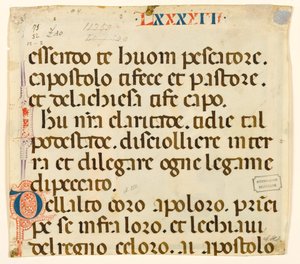 LXXXXII
essendo te huom pescatore.
capostolo tifece et pastore.
et delachiesa tife capo.
Hu n̄ra claritade. tidie tal
potestade. disciolliere inter
ra et dilegare ogne legame
dipeccato.
Dellalto coro apoloro. prīci
pe se infra loro. et lechiaui
delregno celoro. ai apostolo